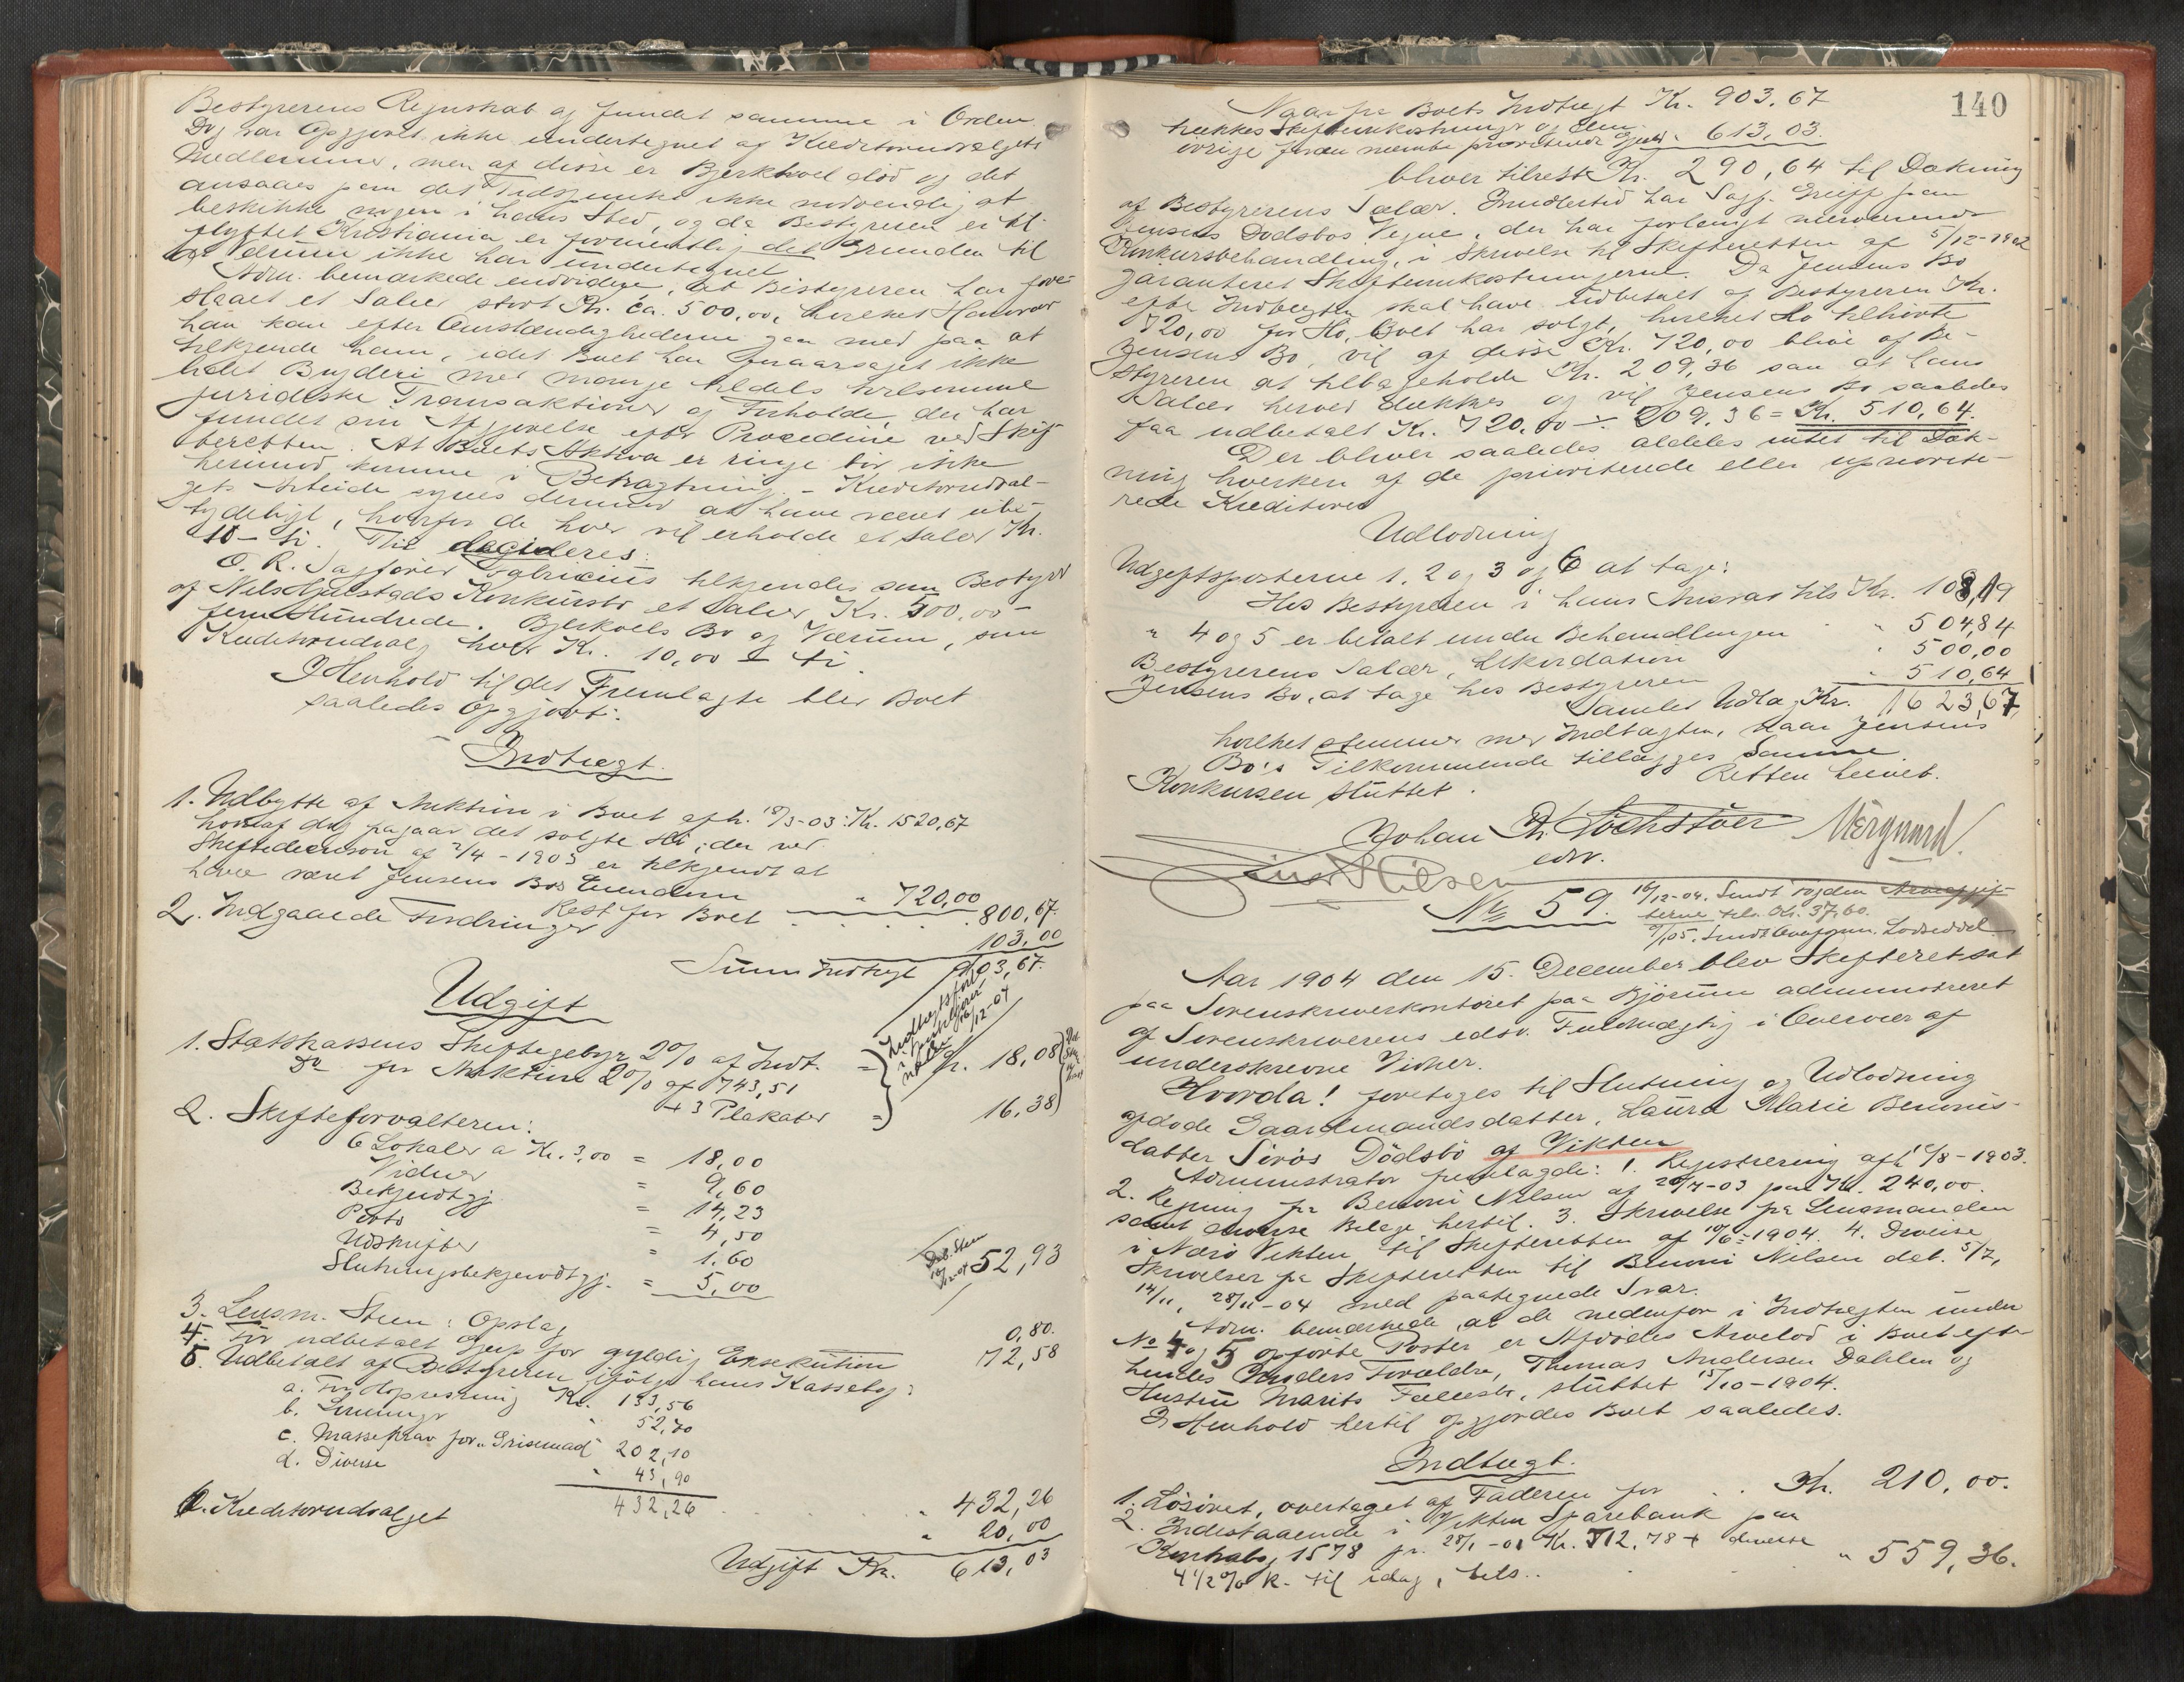 Bestyrerens Regnskab og fundet samme i Orden.
Dog var Opgjøret ikke undertegnet af Kreditorudvalgets
Medlemmer, men af disse er Bjerkhoel död og det
ansaaes paa det Tidspunkt ikke nødvendig at
beskikke nogen i hans Sted, og da Bestyreren er til-
flyttet Kristiania er formentlig det Grunden til
at Værum ikke har undertegnet
Adm. bemærkede endvidere, at Bestyreren har fore-
slaaet et Salær stort Kr. ca. 500,00, hvilket Honorar
han kan efter Omstændighederne gaa med paa at
tilkjende ham, idet Boet har foraarsaget ikke
lidet Bryderi med mange tildels vrlsomme
juridiske Transaktioner og Forholde, der har
fundet sin Afgjørelse efter Procedure ved Skif-
teretten. At Boets Aktiva er ringe bör ikke
herimod komme i Betragtning. - Kreditorudval-
gets Arbeide synes derimod at have været ube-
tydeligt, hvorfor de hver vil erholde et Salær Kr.
10 - ti. Thi decideres:
O. R. Sagförer Fabricius tilkjendes som Bestyrer
af Nils Hjulstads Konkursbo et Salær Kr. 500,00 -
fem Hundrede. Bjerkoels Bo og Værum, som
Kreditorudvalg hver Kr. 10,00 - ti
I Henhold til det Fremlagte blev Boet
saaledes opgjort:
Indtægt.
1. Udbytte af Auktion i Boet afh. 18/3-03: Kr. 1520,67
hvoraf dog fragaar det solgte Hö, der ved
Skiftedecision af 2/4-1903 er tilkjendt at
have været Jensens Bos Eiendom " 720,00
Rest for Boet . . . . 800,67.
2. Indgaaede Fordringer 103,00
Sum Indtægt 903,67.
Udgift
1. Statskassens Skiftegebyr 2% af Indt. = Kr. 18,08
Do for Auktion 2% af 743,51
+ 3 Plakater = 16,38
2. Skifteforvalteren:
6 Lokaler a Kr. 3,00 = 18,00
Vidner = 9,60
Bekjendtgj. = 14,23
Porto = 4,50
Udskrifter = 1,60
Slutningsbekjendtgj. = 5,00
52,93
3. Lensm. Steen: Opslag 0,80.
4. For udbetalt Gjæld for gyldig Exsekution 72,58
5. Udbetalt af Bestyreren ifölge hans Kassebog:
a. For Hopresning Kr. 133,56
b. Lönninger " 52,70
c. Massekrav for "Grisemad" 202,10
d. Diverse " 43,90
432,26 . . . . . " 432,26
6. Kreditorudvalget " 20,00
Udgift Kr. 613,03
140
Naar fra Boets Indtægt Kr. 903,67
trækkes Skifteomkostninger og den
övrige foran nævnte prioriterede Gjæld " 613,03.
bliver tilrest Kr. 290,64 til Dækning
af Bestyrerens Salær. Imidlertid har Sagf. Greiff paa
Jensens Dødsbos Vegne, der har forlangt nærværende
Konkursbehandling, i Skrivelse til Skifteretten af 5/12-1902
garanteret Skifteomkostningerne. Da Jensens Bo
efter Indtægten skal have udbetalt af Bestyreren Kr.
720,00 for Hö, Boet har solgt, hvilket Hö tilhörte
Jensens Bo, vil af disse Kr. 720,00 blive af Be-
styreren at tilbageholde Kr. 209,36 saa at hans
Salær herved dækkes og vil Jensens Bo saaledes
faa udbetalt Kr. 720,00 ÷ 209,36 = Kr. 510,64.
Der bliver saaledes aldeles intet til Dæk-
ning hverken af de prioriterede eller upriorite-
rede Kreditorer
Udlodning
Udgiftsposterne 1, 2 og 3 og 6 at tage:
Hos Bestyreren i hans Ansvar tils Kr. 108,19
" 4 og 5 er betalt under Behandlingen " 504,84
Bestyrerens Salær, Likvidation " 500,00
Jensens Bo, at tage hos Bestyreren " 510,64
Samlet Udlæg Kr. 1623,67,
hvilket stemmer med Indtægten, naar Jensens
Bo's Tilkommende tillægges Samme
Konkursen sluttet. Retten hævet.
Johan Th. Lochstöer
edsv.
No 59. 16/12-04. Sendt Fogden Arveafgif-
terne tils. Kr. 37,60.
Aar 1904 den 15. December blev Skifteret sat
paa Sorenskriverkontoret paa Björum administreret
af Sorenskriverens edsv. Fuldmægtig i Overvær af
underskrevne Vidner.
Hvorda! foretoges til Slutning og Udlodning
afdöde Gaardmandsdatter, Laura Marie Benonis-
datter Sirös Dödsbo af Vikten
Administrator fremlagde: 1. Registrering afh. 10/8-1903.
2. Regning fra Benoni Nilsen af 20/7-03 paa Kr. 240,00.
samt diverse Bilage hertil. 3. Skrivelse fra Lensmanden
i Nærö Vikten til Skifteretten af 10/6-1904. 4. Diverse
Skrivelser fra Skifteretten til Benoni Nilsen dat. 5/7,
14/11, 28/11-04 med paategnede Svar.
Adm. bemærkede, at de nedenfor i Indtægten under
No 4 og 5 opförte Poster er Afdödes Arvelod i Boet efter
hendes Moders Forældre, Thomas Andersen Dahlen og
Hustru Marits Fællesbo, sluttet 15/10-1904.
I Henhold hertil opgjordes Boet saaledes.
Indtægt.
1. Lösöret, overtaget af Faderen for . . Kr. 210,00.
2. Indestaaende i Vikten Sparebank paa
Kontrabog 1578 pr. 28/1-01 Kr. 512,78 + diverse
4 1/2 % R. til idag, tils.. " 559,36.